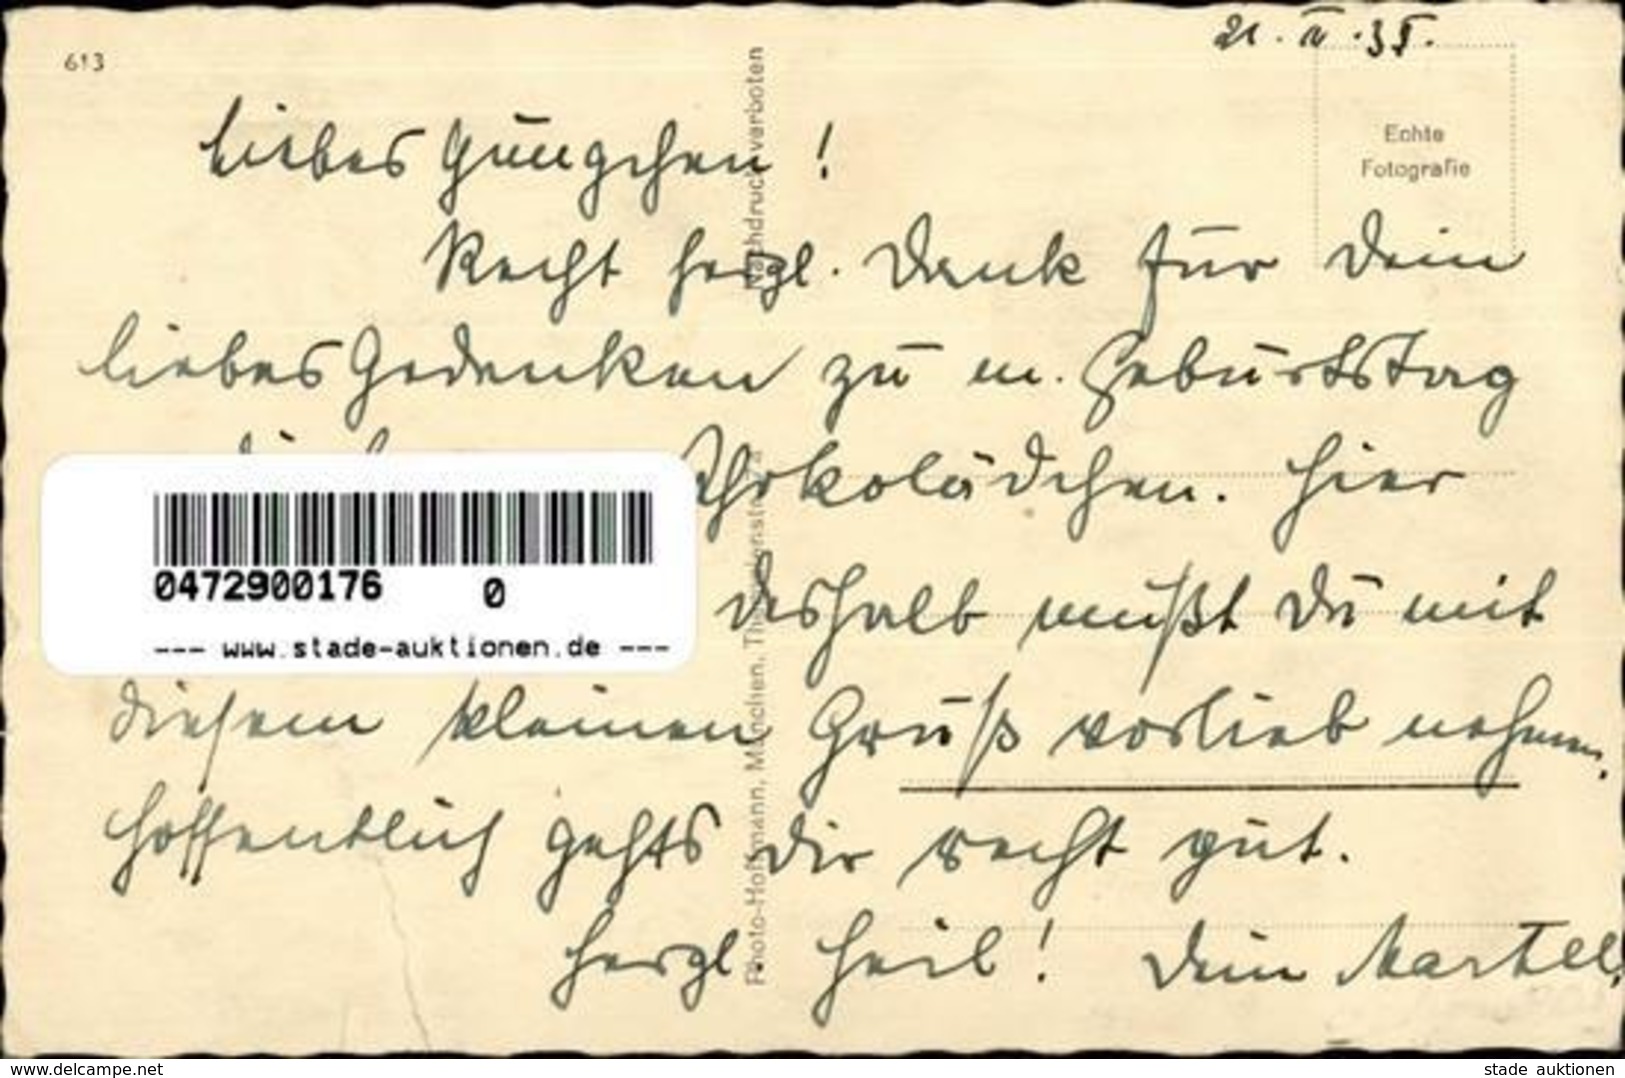 21. II. 35.
613
Echte
Fotografie
Liebes
Recht herzl. Dank für Dein
liebes Gedenken zu m. Geburtstag
Schokolädchen. Hier
deshalb mußt Du mit
diesem kleinen Gruß vorlieb nehmen.
Hoffentlich gehts Dir recht gut.
Herzl. Heil! Dein
Photo-Hoffmann, München, Nachdruck verboten
0472900176 0
--- www.stade-auktionen.de ---
www.delcampe.net
stade auktionen